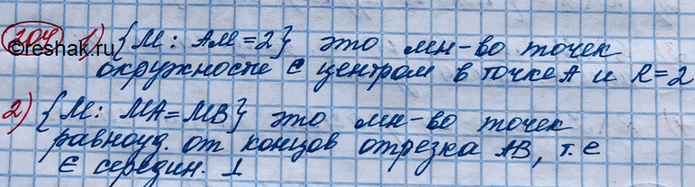 204 1) {М: АМ=2} это мн-во точек
©reshak.ru
окружности с центром в точке А и R=2
2) {М: МА=МВ} это мн-во точек
равноуд. от концов отрезка АВ, т.е
Є середин. ⊥